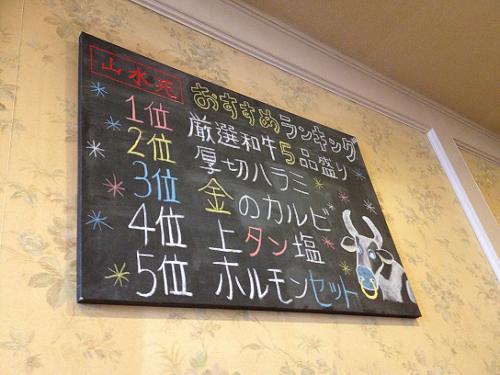 山水苑 おすすめランキング
1位 厳選和牛5品盛り
2位 厚切ハラミ
3位 金のカルビ
4位 上タン塩
5位 ホルモンセット